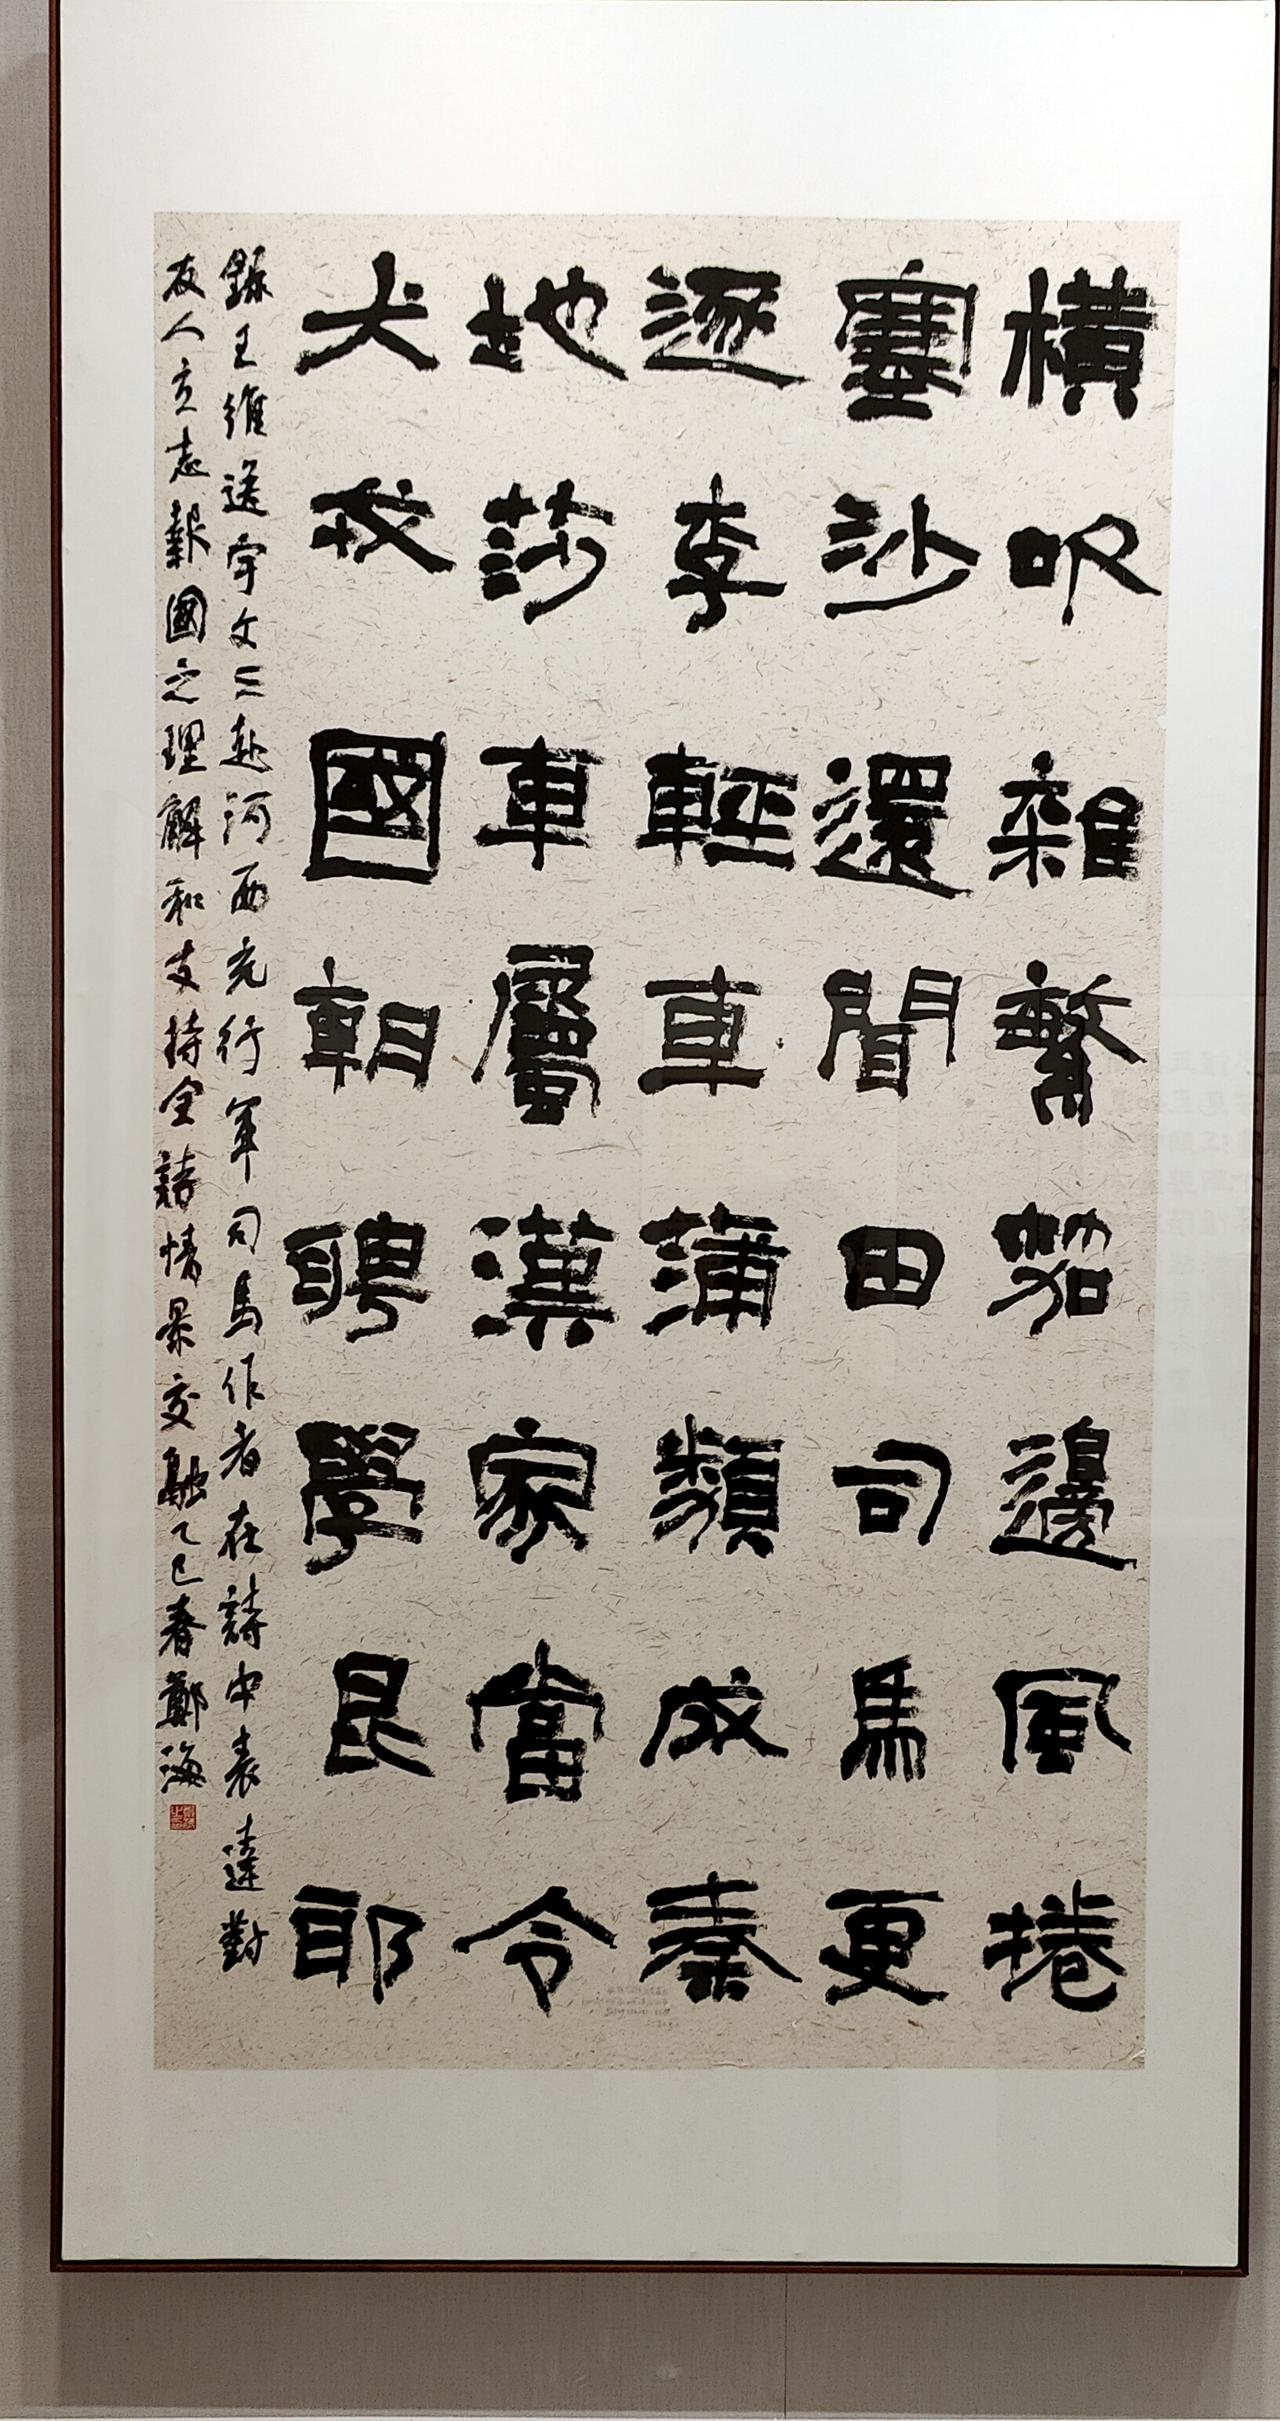 橫吹雜繁笳邊風捲
塞沙還聞田司馬更
逐李輕車蒲類成秦
地莎車屬漢家當令
犬戎國朝聘學昆邪
錄王維送宇文三赴河西充行軍司馬作者在詩中表達對
友人立志報國之理解和支持全詩情景交融乙巳春鄭海